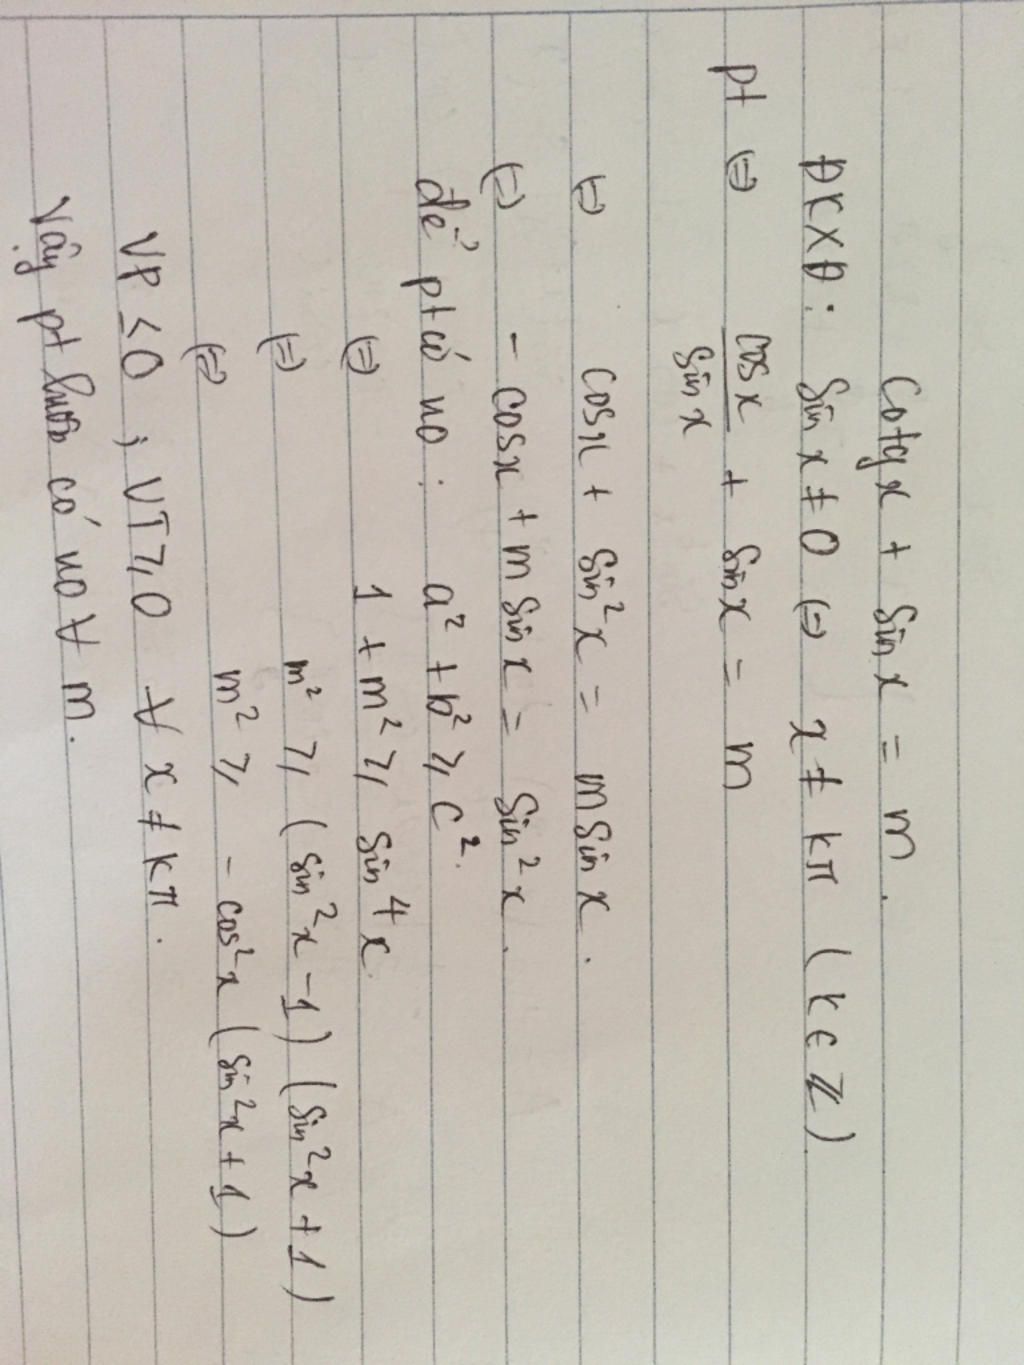 Cotg x + Sin x = m.
ĐKXĐ: Sin x ≠ 0 (=) x ≠ kπ (k ∈ ℤ)
pt (=) cos x / sin x + sin x = m
(=) cos x + sin²x = m sin x.
(=) - cos x + m sin x = sin²x.
để pt có no: a² + b² ≥ c².
(=) 1 + m² ≥ sin⁴x.
(=) m² ≥ (sin²x - 1)(sin²x + 1)
(=) m² ≥ - cos²x (sin²x + 1)
VP ≤ 0 ; VT ≥ 0 ∀ x ≠ kπ.
Vậy pt luôn có no ∀ m.